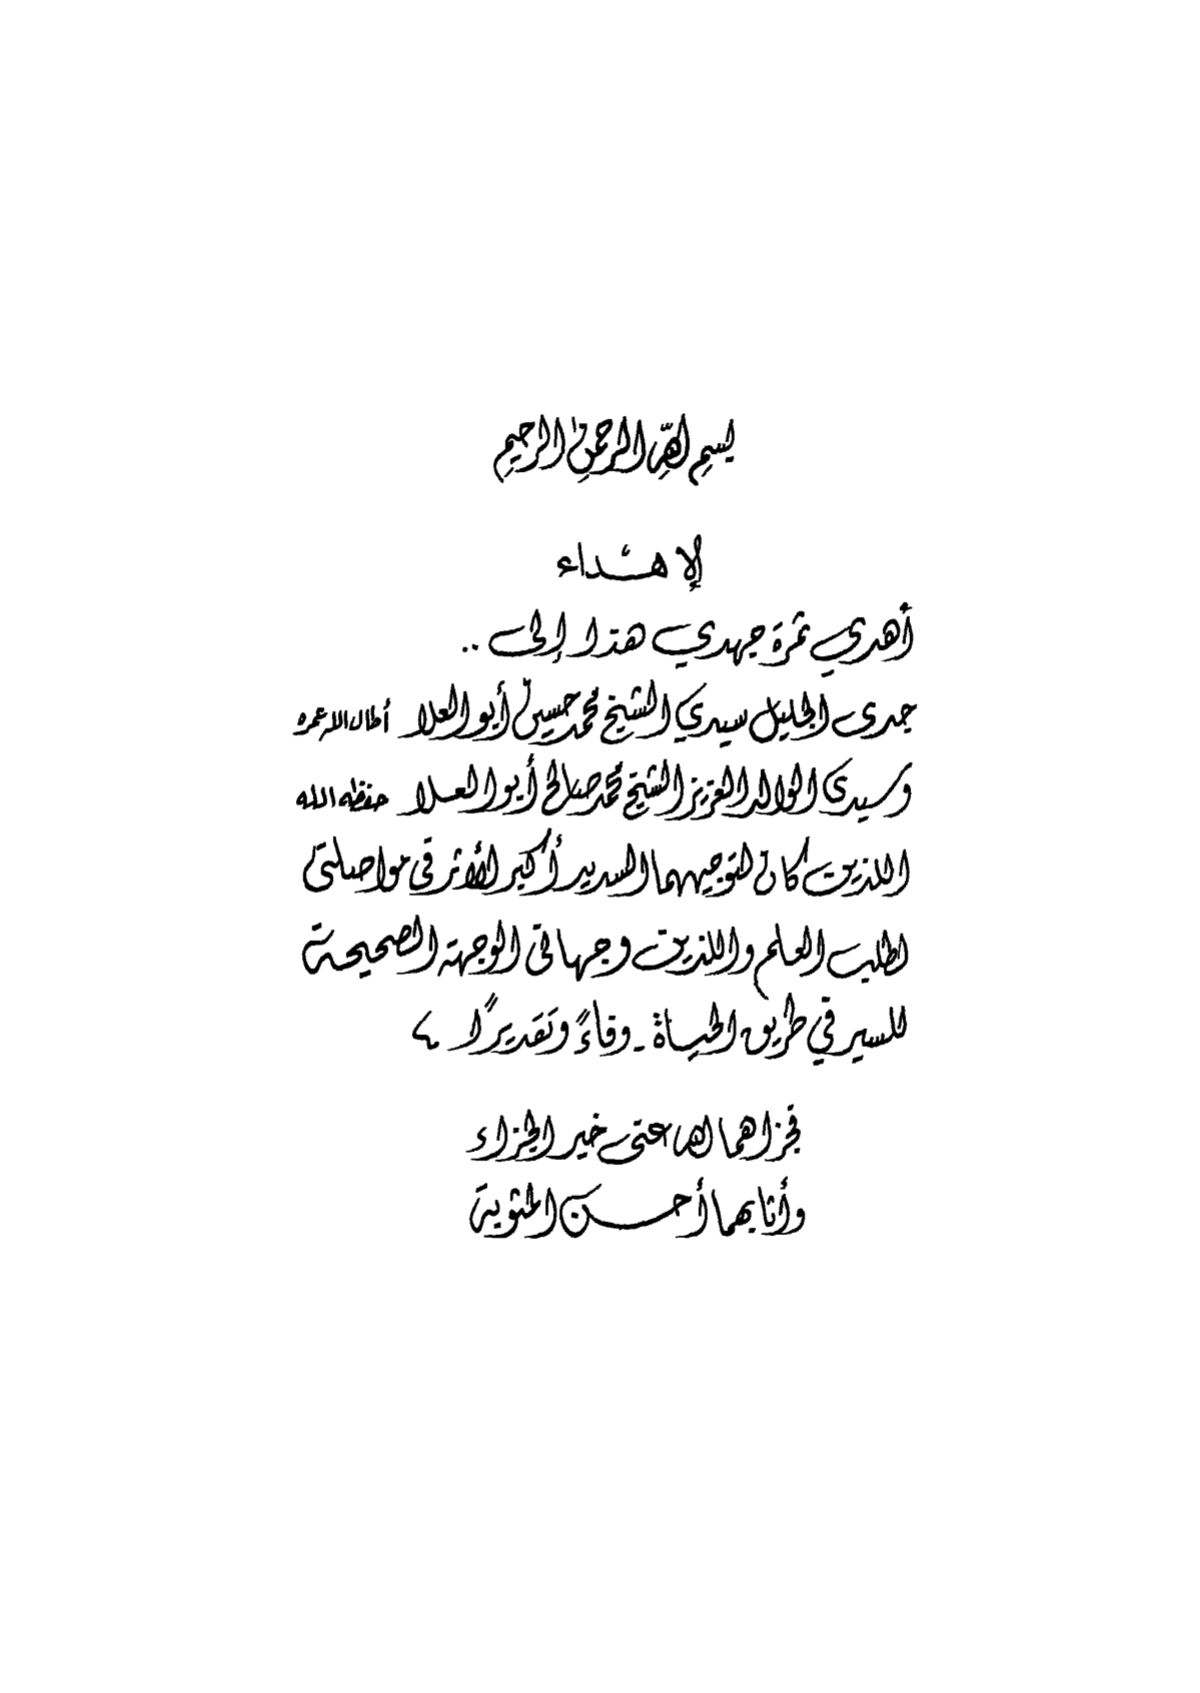 بسم الله الرحمن الرحيم
الإهداء
أهدي ثمرة جهدي هذا إلى ..
جدى الجليل سيدي الشيخ محمد حسين أبو العلا أطال الله عمره
وسيدى الوالد العزيز الشيخ محمد صالح أبو العلا حفظه الله
اللذين كان لتوجيههما السديد أكبر الأثر في مواصلتى
لطلب العلم واللذين وجهانى الوجهة الصحيحة
للسير في طريق الحياة - وفاءً وتقديرًا
فجزاهما الله عنى خير الجزاء
وأثابهما أحسن المثوبة